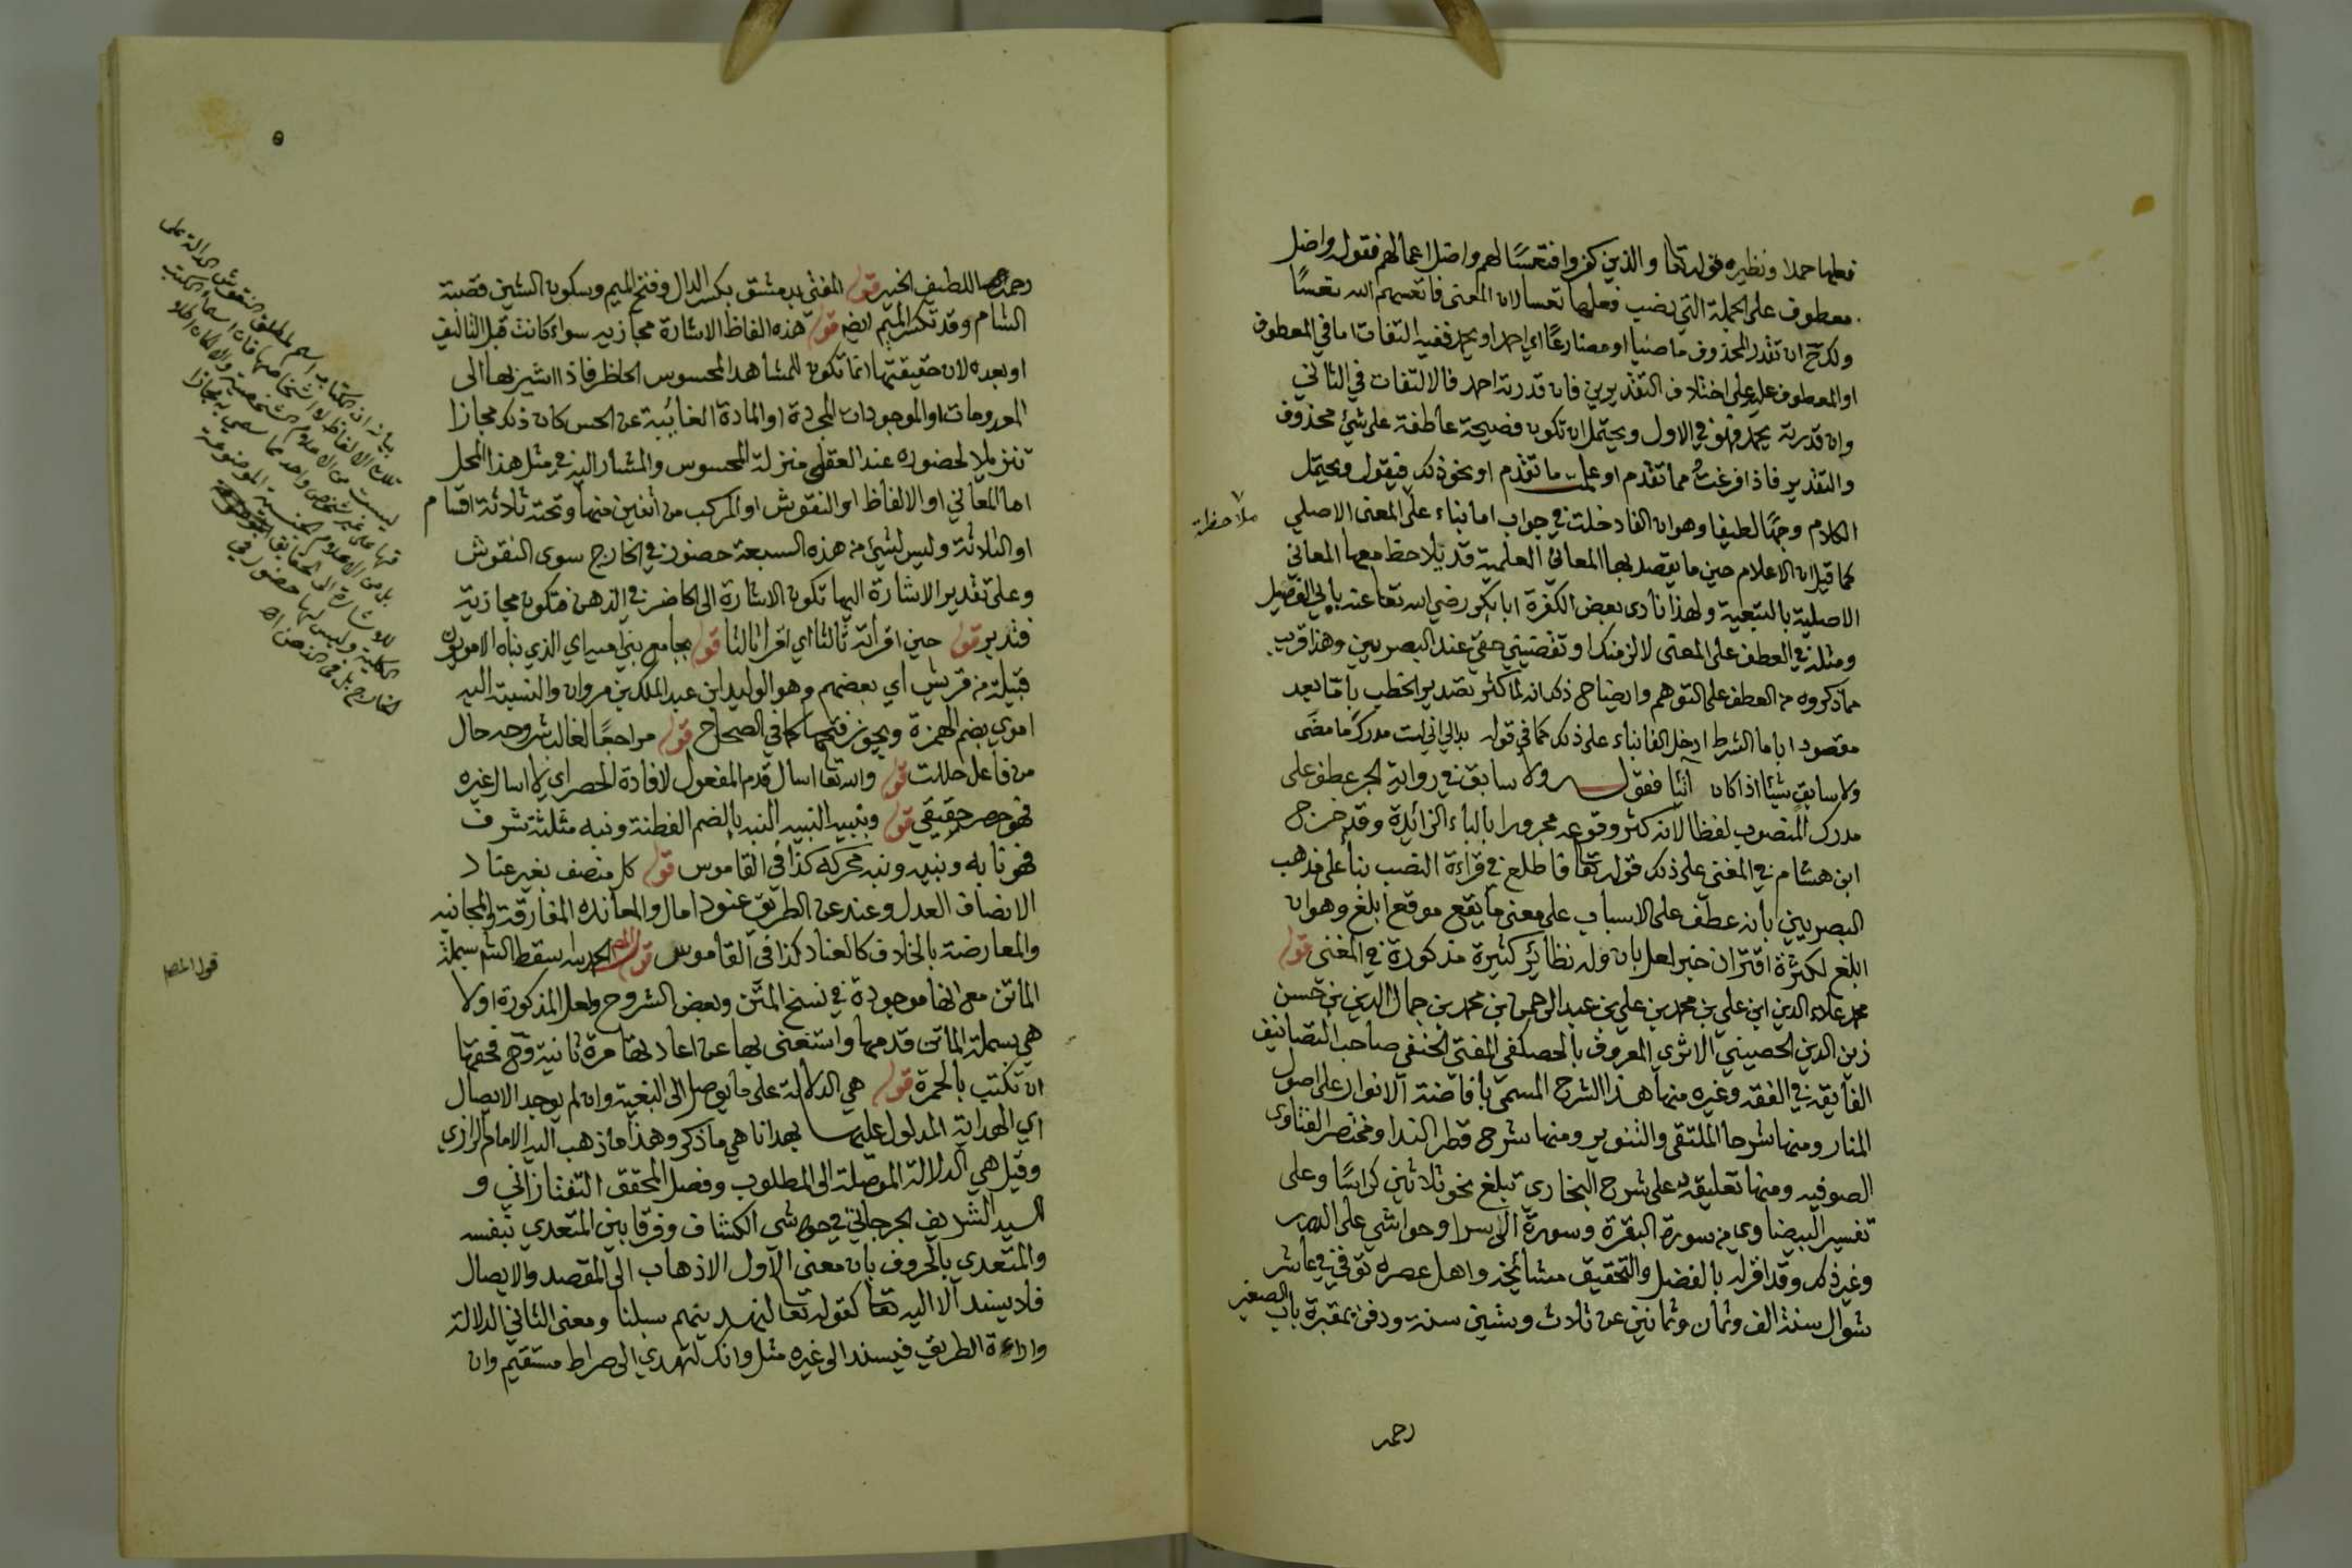 فعلها حملا ونظيره قوله تعا والذين كفروا فتعسًا لهم واضل اعمالهم فقوله واضل
معطوف على الجملة التي نصب فعلها تعسا لان المعنى فاتعسهم الله تعسًا
ولك ح ان تقدر المحذوف ماضيا او مضارعًا اي احمد او يحمد ففيه التفات اما في المعطوف
او المعطوف عليه على اختلاف التقديرين فان قدرته احمد فالالتفات في الثاني
وان قدرته يحمد فهو في الاول ويحتمل ان تكون فصيحة عاطفة على شئ محذوف
والتقدير فاذا فرغت مما تقدم او علمت ما تقدم او نحو ذلك فيقول ويحتمل
الكلام وجهًا لطيفا وهو ان الفا دخلت في جواب اما بناء على المعنى الاصلي
ملاحظة
كما قيل ان الاعلام حين ما يقصد بها المعاني العلمية قد يلاحظ معها المعاني
الاصلية بالتبعية ولهذا نادى بعض الكفرة ابا بكر رضي الله تعا عنه بابي الفصيل
ومثله في العطف على المعنى لالزمنك او تقضيني حقي عند البصريين وهذا قريب
مما ذكروه من العطف على التوهم وايضاح ذلك انه لما كثر تصدير الخطب باما بعد
مقصودا باما الشرط ادخل الفا بناء على ذلك كما في قوله بدا لي اني لست مدرك ما مضى
ولا سابق شيئا اذا كان آتيا فقوله ولا سابق في رواية الجر عطف على
مدرك المنصوب لفظا لانه كثر وقوعه مجرورا بالباء الزائدة وقد خرج
ابن هشام في المغني على ذلك قوله تعا فاطلع في قراءة النصب بناء على مذهب
البصريين بانه عطف على الاسباب على معنى ما يقع موقع ابلغ وهو ان
ابلغ لكثرة اقتران خبر لعل بان وله نظائر كثيرة مذكورة في المغني قوله
محمد علاء الدين ابن علي بن محمد بن علي بن عبد الرحمن بن محمد بن جمال الدين بن حسن
زين الدين الحصيني الاثري المعروف بالحصكفي المفتي الحنفي صاحب التصانيف
الفايقة في الفقه وغيره منها هذا الشرح المسمى بافاضة الانوار على اصول
المنار ومنها شرحا الملتقى والتنوير ومنها شرح قطر الندا ومختصر الفتاوى
الصوفيه ومنها تعليقة على شرح البخاري تبلغ نحو ثلاثين كراسًا وعلى
تفسير البيضاوي من سورة البقرة وسورة الاسرا وحواشي على الدرر
وغير ذلك وقد اقر له بالفضل والتحقيق مشائخه واهل عصره توفي في عاشر
شوال سنة الف وثمان وثمانين عن ثلاث وستين سنة ودفن بمقبرة باب الصغير
رحمه
٥
رحمه اللطيف الخبير قوله المفتي بدمشق بكسر الدال وفتح الميم وسكون الشين قصبة
الشام وقد تكسر الميم ايضا قوله هذه الفاظ الاشارة مجازيه سواء كانت قبل التاليف
او بعده لان حقيقتها انما تكون للمشاهد المحسوس الحاظر فاذا اشير بها الى
المعدومات او الموجودات المجردة او المادة الغائبة عن الحس كان ذلك مجازا
تنزيلا لحضوره عند العقل منزلة المحسوس والمشار اليه في مثل هذا المحل
اما المعاني او الالفاظ او النقوش او المركب من اثنين منها وتحته ثلاثة اقسام
او الثلاثة وليس لشئ من هذه السبعة حضور في الخارج سوى النقوش
وعلى تقدير الاشارة اليها تكون الاشارة الى الحاضر في الذهن فتكون مجازية
فتدبر قوله حين اقرأته ثالثا اي اقرائا ثالثا قوله بجامع بني امية اي الذي بناه الامويون
قبيلة من قريش اي بعضهم وهو الوليد ابن عبد الملك بن مروان والنسبة اليه
اموي بضم الهمزة ويجوز فتحها كما في الصحاح قوله مراجعًا لغالب شروحه حال
من فاعل حللت قوله والله تعا اسال قدم المفعول لافادة الحصر اي لا اسال غيره
فهو حصر حقيقي قوله ونبيه النبيه النبه بالضم الفطنة ونبه مثلثة شرف
فهو نابه ونبيه ونبه محركه كذا في القاموس قوله كل منصف بغير عناد
الانصاف العدل وعند عن الطريق عنودا مال والمعانده المفارقة والمجانبه
والمعارضة بالخلاف كالعناد كذا في القاموس قوله المص الحمد لله اسقط الشم بسملة
قول المص
الماتن مع انها موجودة في نسخ المتن وبعض الشروح ولعل المذكورة اولا
هي بسملة الماتن قدمها واستغنى بها عن اعادتها مرة ثانية وح فحقها
ان تكتب بالحمرة قوله هي الدلالة على ما يوصل الى البغية وان لم يوجد الايصال
اي الهداية المدلول عليها بهدانا هي ما ذكر وهذا ما ذهب اليه الامام الرازي
وقيل هي الدلالة الموصلة الى المطلوب وفصل المحقق التفتازاني و
السيد الشريف الجرجاني في حواشي الكشاف وفرقا بين المتعدي بنفسه
والمتعدي بالحروف بان معنى الاول الاذهاب الى المقصد والايصال
فلا يسند الا اليه تعا كقوله تعا لنهدينهم سبلنا ومعنى الثاني الدلالة
واراءة الطريق فيسند الى غيره مثل وانك لتهدي الى صراط مستقيم وان
بيانه ان الكتاب اسم لمطلق النقوش الدالة على
تلك الالفاظ لا اشخاصها فان اسماء الكتب
ليست من الاعلام الشخصية والا لكان اطلاقها
على غير شخص واحد مما سمي به مجازا
بل من الاعلام الجنسية الموضوعة
للحقائق
الكلية وليس لها حضور في
الخارج بل في الذهن اه